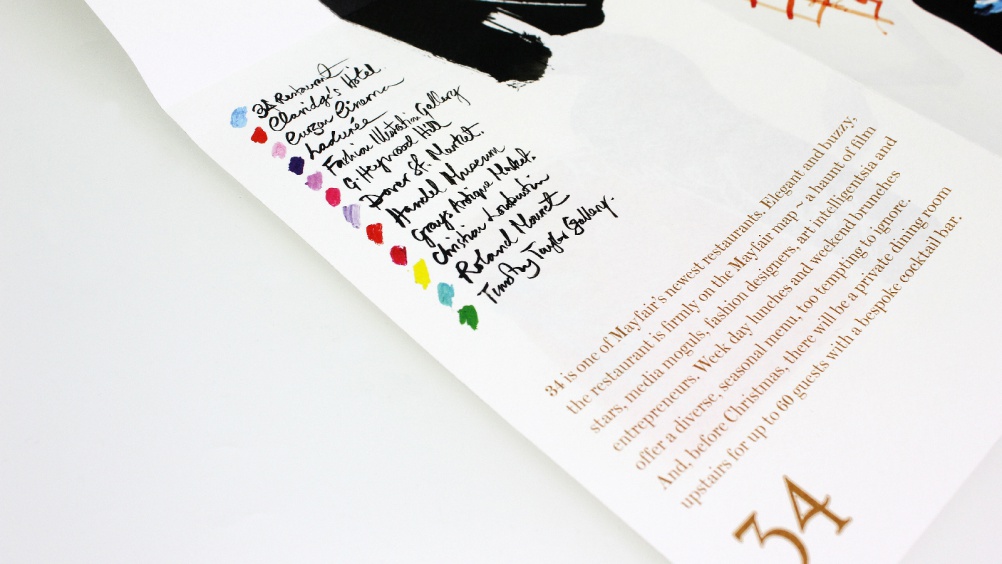 34 Restaurant
Claridge's Hotel.
Curzon Cinema
Ladurée
Fashion Illustration Gallery
G. Heywood Hill
Dover St. Market.
Handel Museum
Grays Antique Market.
Christian Louboutin
Roland Mouret
Timothy Taylor Gallery.
34 is one of Mayfair's newest restaurants. Elegant and buzzy,
the restaurant is firmly on the Mayfair map – a haunt of film
stars, media moguls, fashion designers, art intelligentsia and
entrepreneurs. Week day lunches and weekend brunches
offer a diverse, seasonal menu, too tempting to ignore.
And, before Christmas, there will be a private dining room
upstairs for up to 60 guests with a bespoke cocktail bar.
34